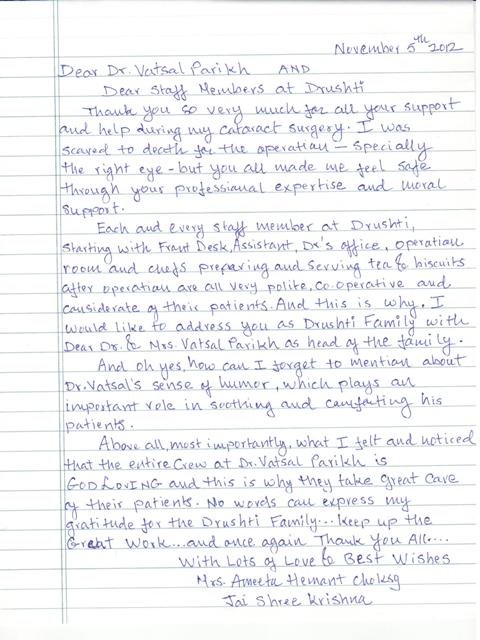 November 5th 2012
Dear Dr. Vatsal Parikh AND
Dear Staff Members at Drushti
Thank you so very much for all your support
and help during my cataract surgery. I was
scared to death for the operation - specially
the right eye - but you all made me feel safe
through your professional expertise and moral
support.
Each and every staff member at Drushti,
starting with Front Desk, Assistant, Dr's office, operation
room and chefs preparing and serving tea & biscuits
after operation are all very polite, co.operative and
considerate of their patients. And this is why, I
would like to address you as Drushti Family with
Dear Dr. & Mrs. Vatsal Parikh as head of the family.
And oh yes, how can I forget to mention about
Dr. Vatsal's sense of humor, which plays an
important role in soothing and comforting his
patients.
Above all, most importantly, what I felt and noticed
that the entire Crew at Dr. Vatsal Parikh is
GOD LOVING and this is why they take great care
of their patients. No words can express my
gratitude for the Drushti Family... Keep up the
Great Work... and once again Thank You All....
With Lots of Love & Best Wishes
Mrs. Ameeta Hemant Choksy
Jai Shree Krishna